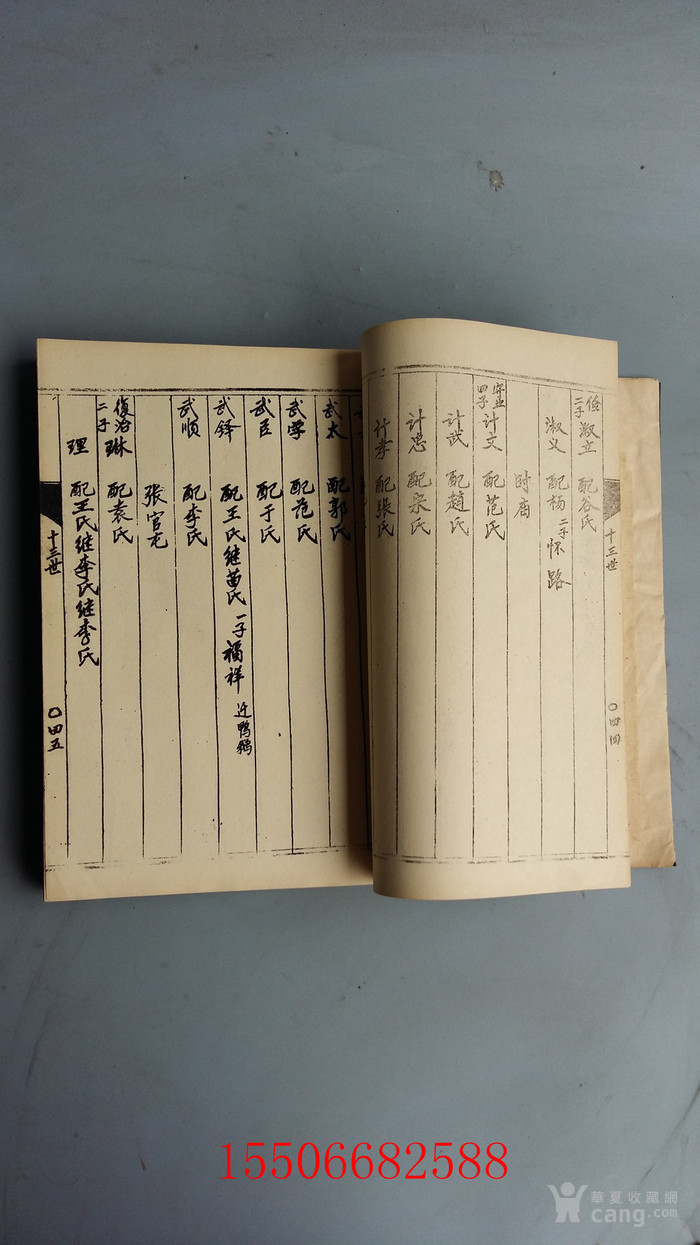 十三世
〇四四
俭
二子 淑立 配谷氏
淑义 配杨 二子怀路
时
四子 计文 配范氏
计武 配趙氏
计忠 配宋氏
计孝 配张氏
武太 配郭氏
武学 配范氏
武臣 配于氏
武铎 配王氏继苗氏 一子福祥 近鸭鹅
武顺 配李氏
张官元
復治
二子 琳 配袁氏
理 配王氏继李氏继李氏
十三世
〇四五
15506682588
華夏收藏網
cang.com